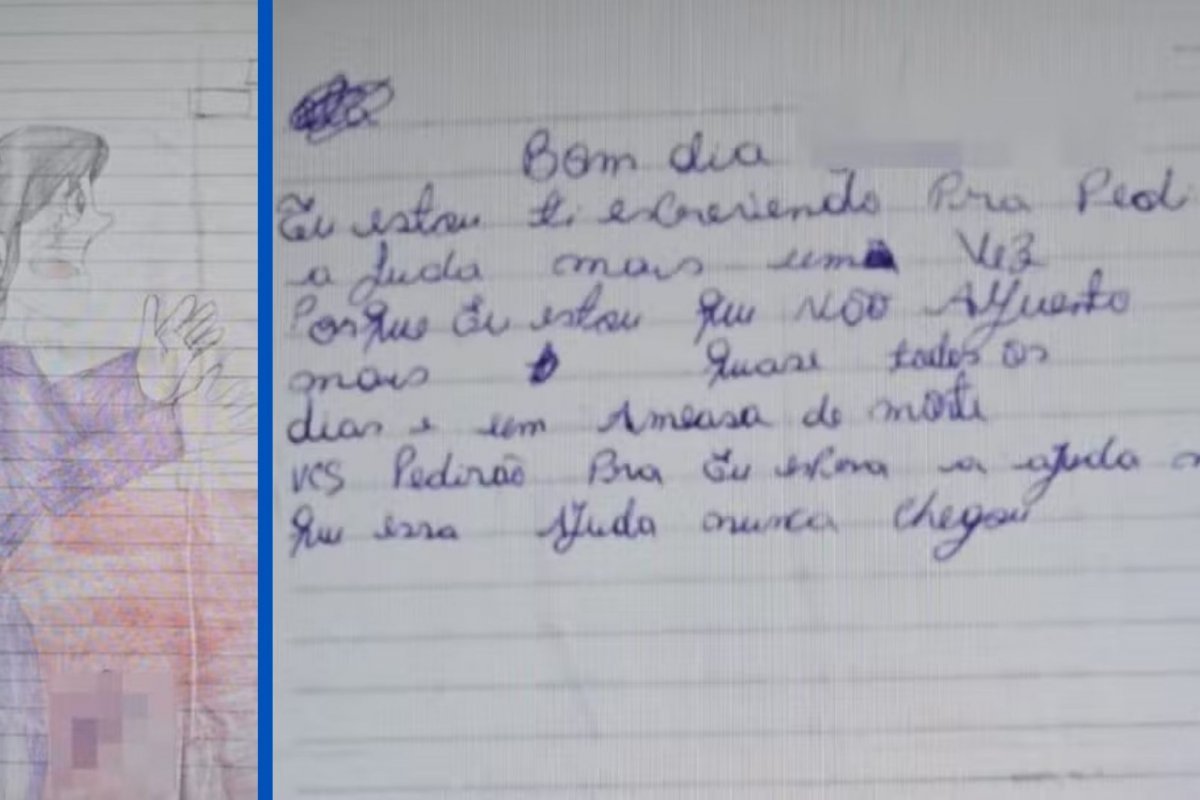 Bom dia
Eu estou ti escrevendo Pra Ped
a Juda mais uma Vez
Porque Eu estou que NÃO AJuento
mais quase todos os
dias e um Ameasa de morte
VCS Pedirão Pra Eu espera a ajuda
que essa AJuda nunca chegou